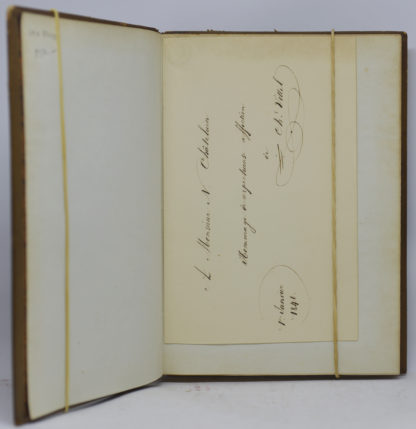 A Monsieur N Châtelain
Hommage de respectueuse affection
de Ch.
1er Janvier
1841.